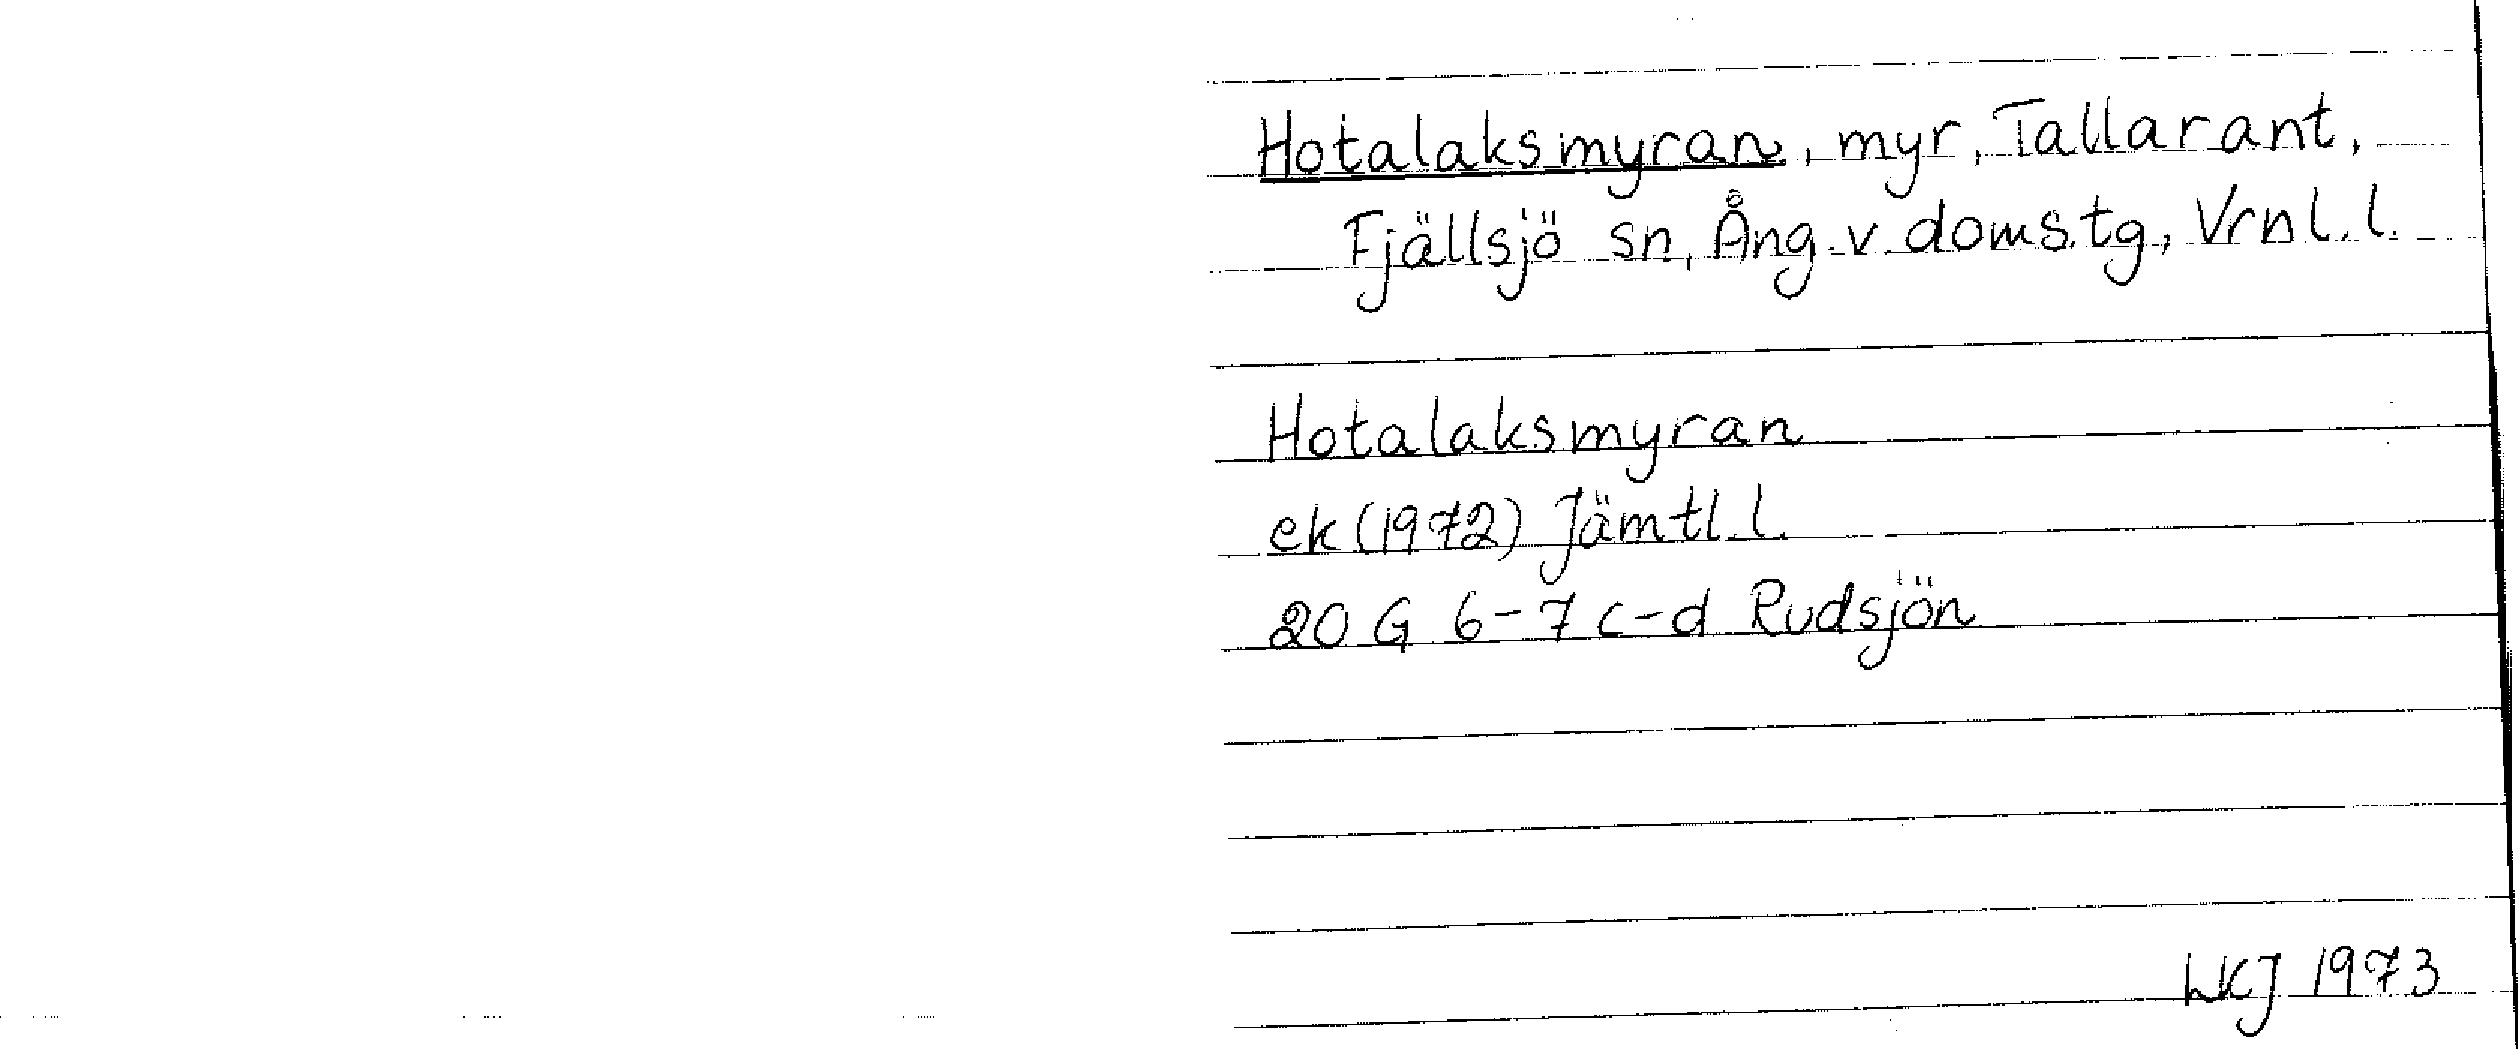 Hotalaksmyran, myr, Tallarant,
Fjällsjö sn, Ång. v. doms.tg, Vrnl. l.
Hotalaksmyran
ek (1972) Jämtl. l.
20 G 6-7 c-d Rudsjön
LKJ 1973